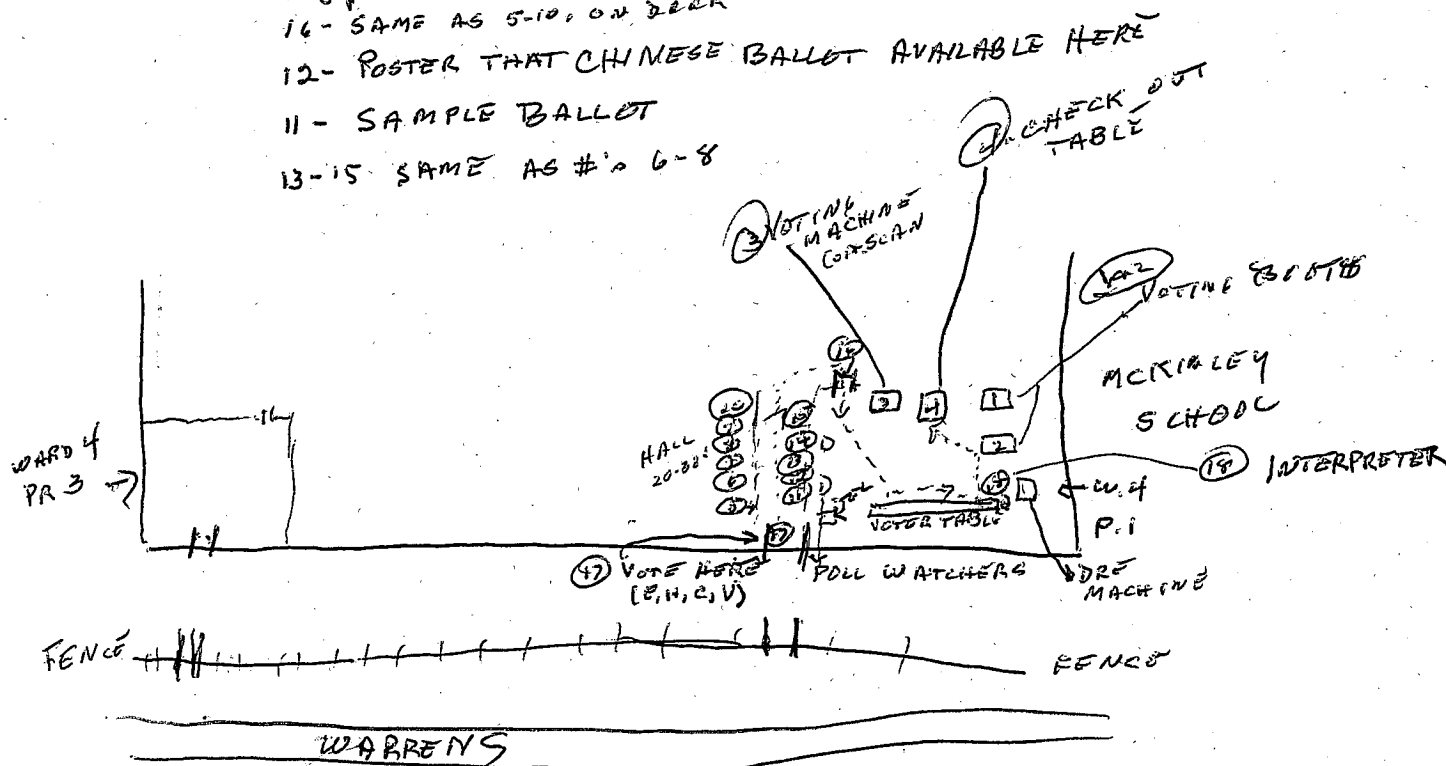 16- SAME AS 5-10, ON DECK
12- POSTER THAT CHINESE BALLOT AVAILABLE HERE
11- SAMPLE BALLOT
13-15 SAME AS #'s 6-8
4 - CHECK OUT
TABLE
3 VOTING
MACHINE
1 or 2
VOTING BOOTHS
MCKINLEY
SCHOOL
16
3
4
1
2
HALL
WARD 4
PR 3
18 INTERPRETER
1
W. 4
P. 1
VOTER TABLE
17 VOTE HERE
(E, H, C, V)
POLL WATCHERS
DRE
MACHINE
FENCE
FENCE
WARRENS